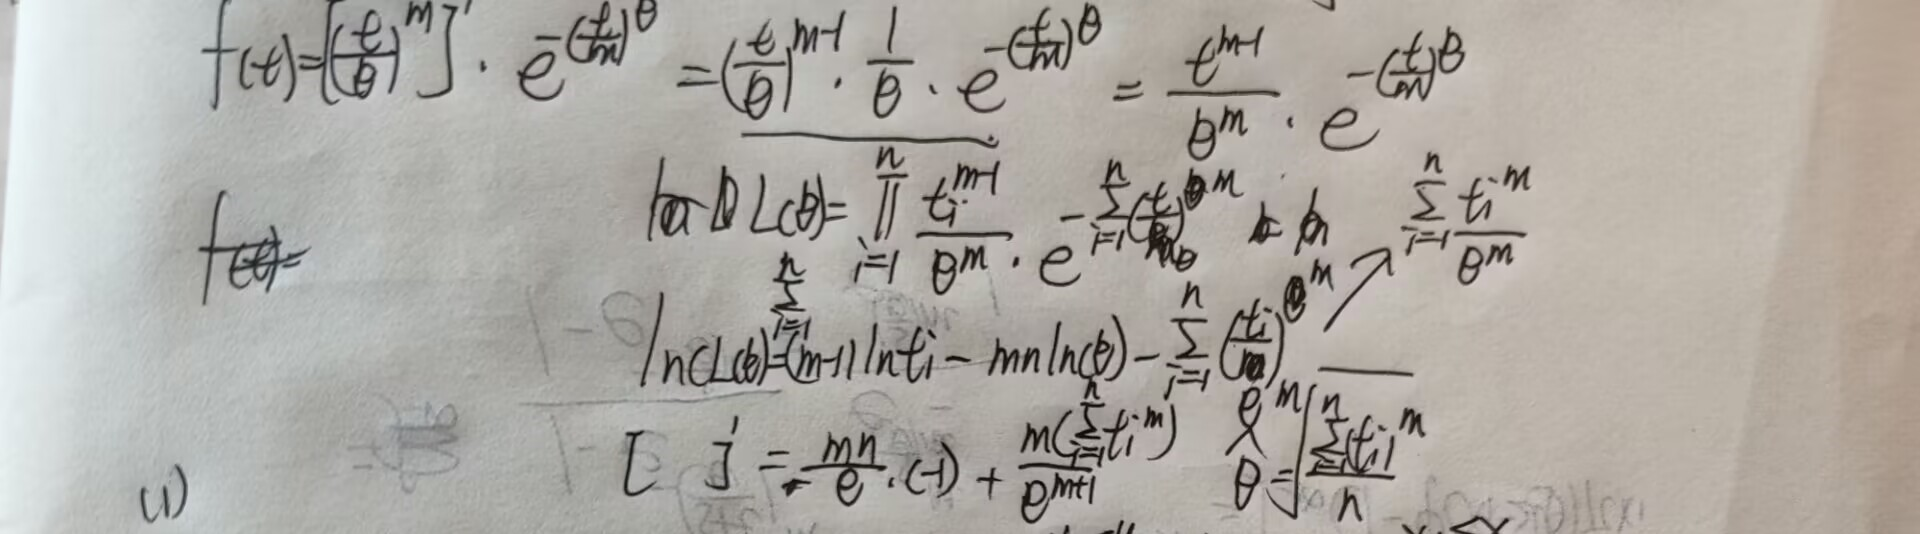 f(t)=[(t/θ)^m]' · e^{-(t/m)^θ} = (t/θ)^{m-1} · 1/θ · e^{-(t/m)^θ} = t^{m-1}/θ^m · e^{-(t/m)^θ}
L(θ)= ∏_{i=1}^{n} t_i^{m-1}/θ^m · e^{-∑_{i=1}^{n}(t/θ)^m} ∑_{i=1}^{n} t_i^m/θ^m
f(t)=
ln(L(θ))=∑_{i=1}^{n}(m-1)ln t_i - mn ln(θ) - ∑_{i=1}^{n}(t_i/)^m
[ ]' = mn/θ · (-1) + m(∑_{i=1}^{n} t_i^m)/θ^{m+1} θ̂ = ^m√(∑_{i=1}^{n}(t_i)^m/n)
(1)